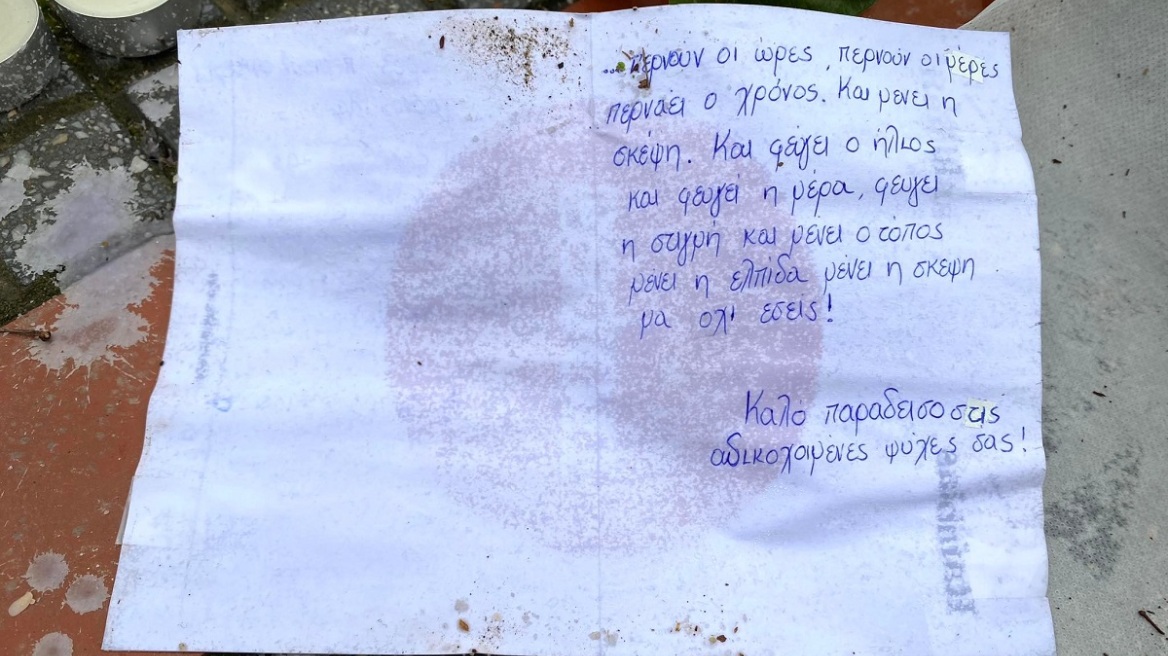 ... περνουν οι ώρες, περνούν οι μέρες
περνάει ο χρόνος. Και μενει η
σκέψη. Και φεύγει ο ήλιος
και φευγει η μέρα, φευγει
η στιγμή και μένει ο τόπος
μένει η ελπίδα μένει η σκεψη
μα οχι εσείς!
Καλό παραδεισο στις
αδικοχαμένες ψύχες σας!